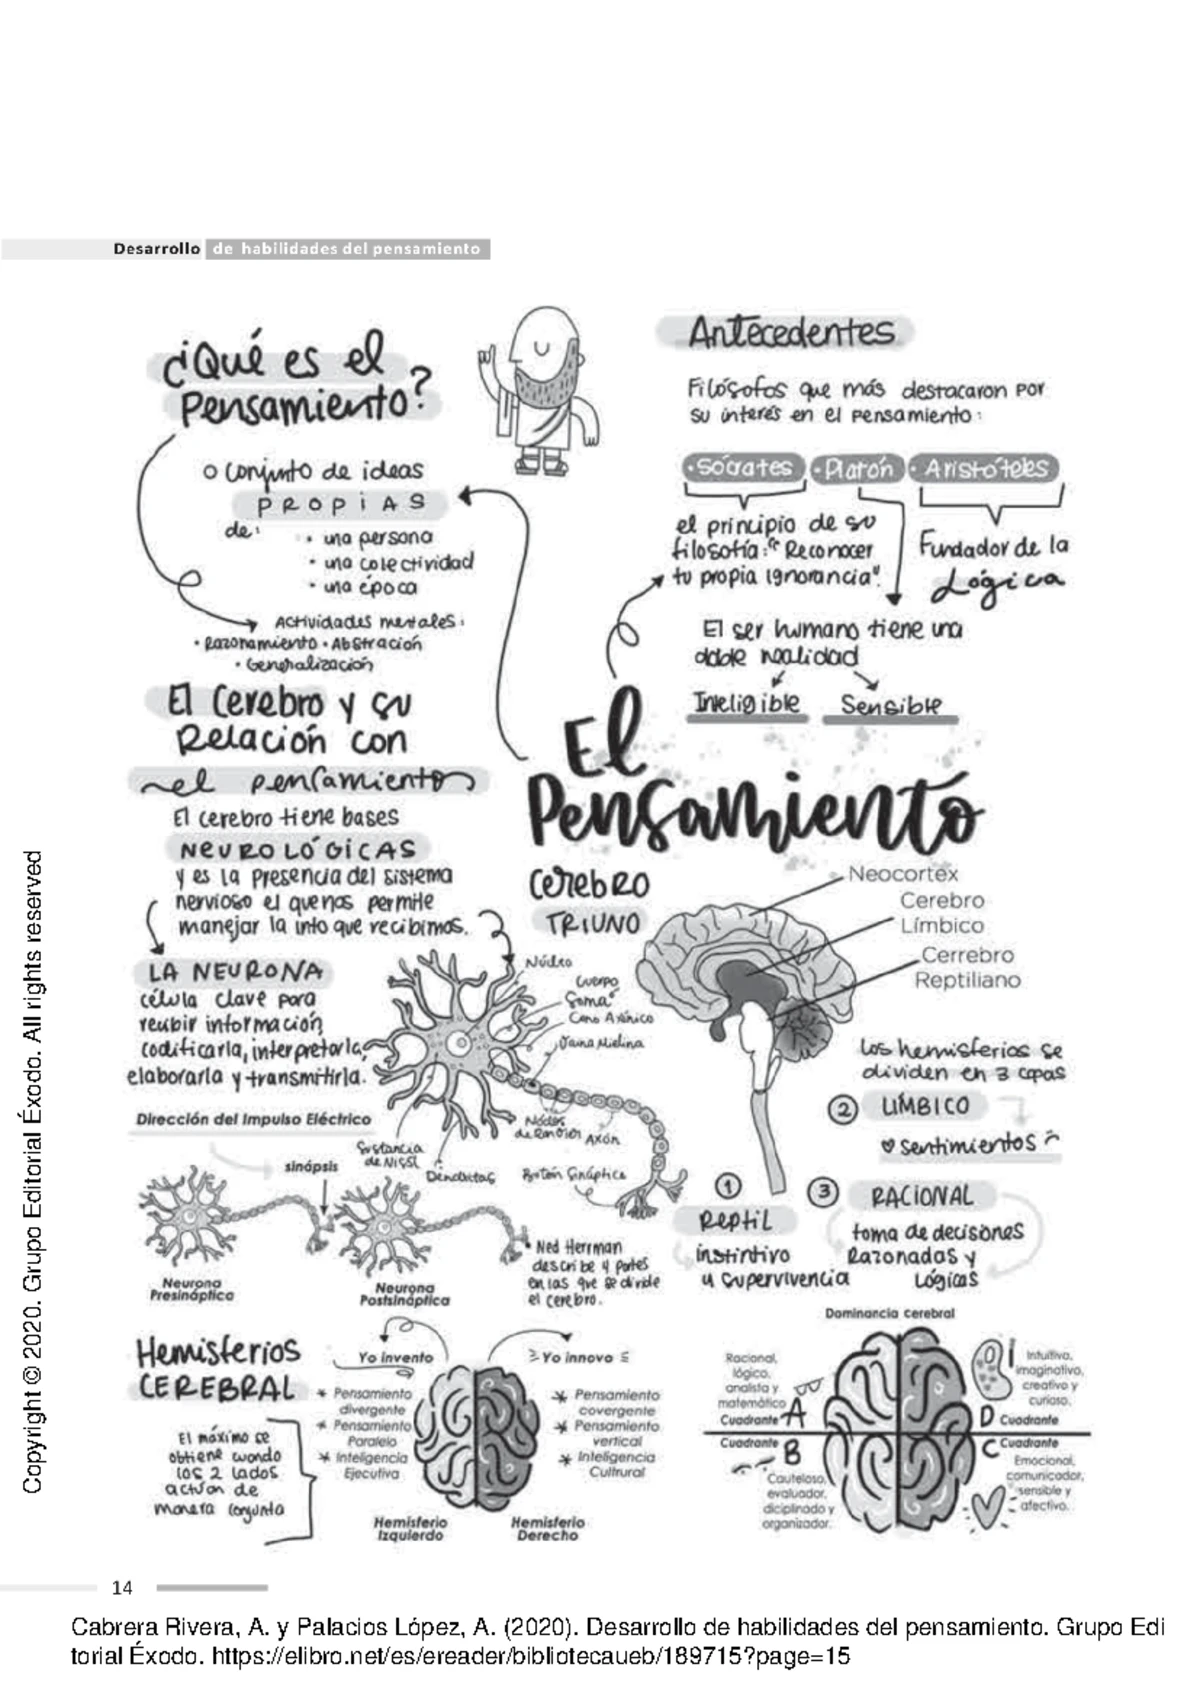 Desarrollo de habilidades del pensamiento
¿Qué es el
Pensamiento?
conjunto de ideas
PROPiAS
de:
• una persona
• una colectividad
• una época
Actividades mentales:
• Razonamiento • Abstración
• Generalización
Antecedentes
Filósofos que más destacaron por
su interés en el pensamiento:
• Sócrates
• Platón
• Aristóteles
el principio de su
filosofía: "Reconocer
tu propia ignorancia".
Fundador de la
Lógica
El ser humano tiene una
doble realidad
Ineligible
Sensible
El Cerebro y su
Relación con
el pensamiento
El cerebro tiene bases
NEUROLÓGICAS
y es la presencia del sistema
nervioso el que nos permite
manejar la info que recibimos.
LA NEURONA
célula clave para
recibir información,
codificarla, interpretarla,
elaborarla y transmitirla.
El
Pensamiento
Cerebro
TRIUNO
Neocortex
Cerebro
Límbico
Cerrebro
Reptiliano
Núcleo
Cuerpo
Soma
Cono Axónico
Vaina Mielina
Nódos
de Ranvier
Axón
Sustancia
de Nissl
Dendritas
Botón Sináptico
Los hemisferios se
dividen en 3 capas
2 LÍMBICO
sentimientos
1
Reptil
instintivo
u supervivencia
3 RACIONAL
toma de decisiones
Razonadas y
Lógicas
Dirección del Impulso Eléctrico
sinápsis
Neurona
Presináptica
Neurona
Postsináptica
Ned Herrman
describe 4 partes
en las que se divide
el cerebro.
Hemisferios
CEREBRAL
El máximo se
obtiene cuando
los 2 lados
actúan de
manera conjunta
Yo invento
* Pensamiento
divergente
* Pensamiento
Paralelo
* Inteligencia
Ejecutiva
Hemisferio
Izquierdo
Yo innovo
* Pensamiento
covergente
* Pensamiento
vertical
* Inteligencia
Cultrural
Hemisferio
Derecho
Dominancia cerebral
Racional,
lógico,
analista y
matemático
Cuadrante A
Intuitivo,
imaginativo,
creativo y
curioso.
D Cuadrante
Cuadrante B
Cauteloso,
evaluador,
diciplinado y
organizador.
C Cuadrante
Emocional,
comunicador,
sensible y
afectivo.
14
Copyright © 2020. Grupo Editorial Éxodo. All rights reserved
Cabrera Rivera, A. y Palacios López, A. (2020). Desarrollo de habilidades del pensamiento. Grupo Edi
torial Éxodo. https://elibro.net/es/ereader/bibliotecaueb/189715?page=15